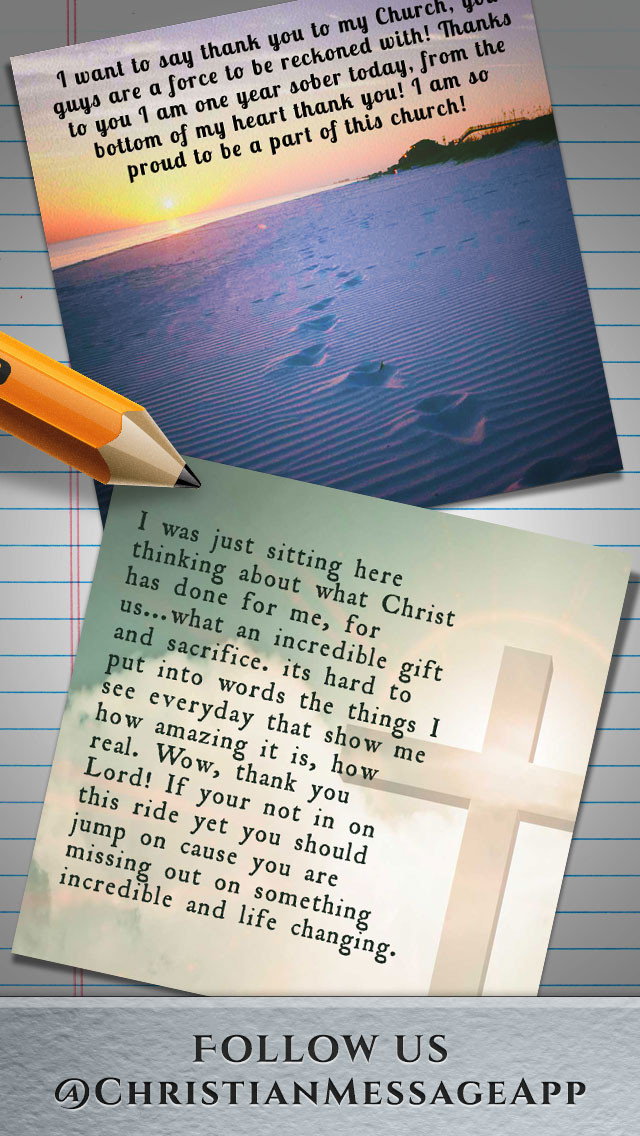 I want to say thank you to my Church, you
guys are a force to be reckoned with! Thanks
to you I am one year sober today, from the
bottom of my heart thank you! I am so
proud to be a part of this church!
I was just sitting here
thinking about what Christ
has done for me, for
us...what an incredible gift
and sacrifice. its hard to
put into words the things I
see everyday that show me
how amazing it is, how
real. Wow, thank you
Lord! If your not in on
this ride yet you should
jump on cause you are
missing out on something
incredible and life changing.
Follow us
@ChristianMessageApp